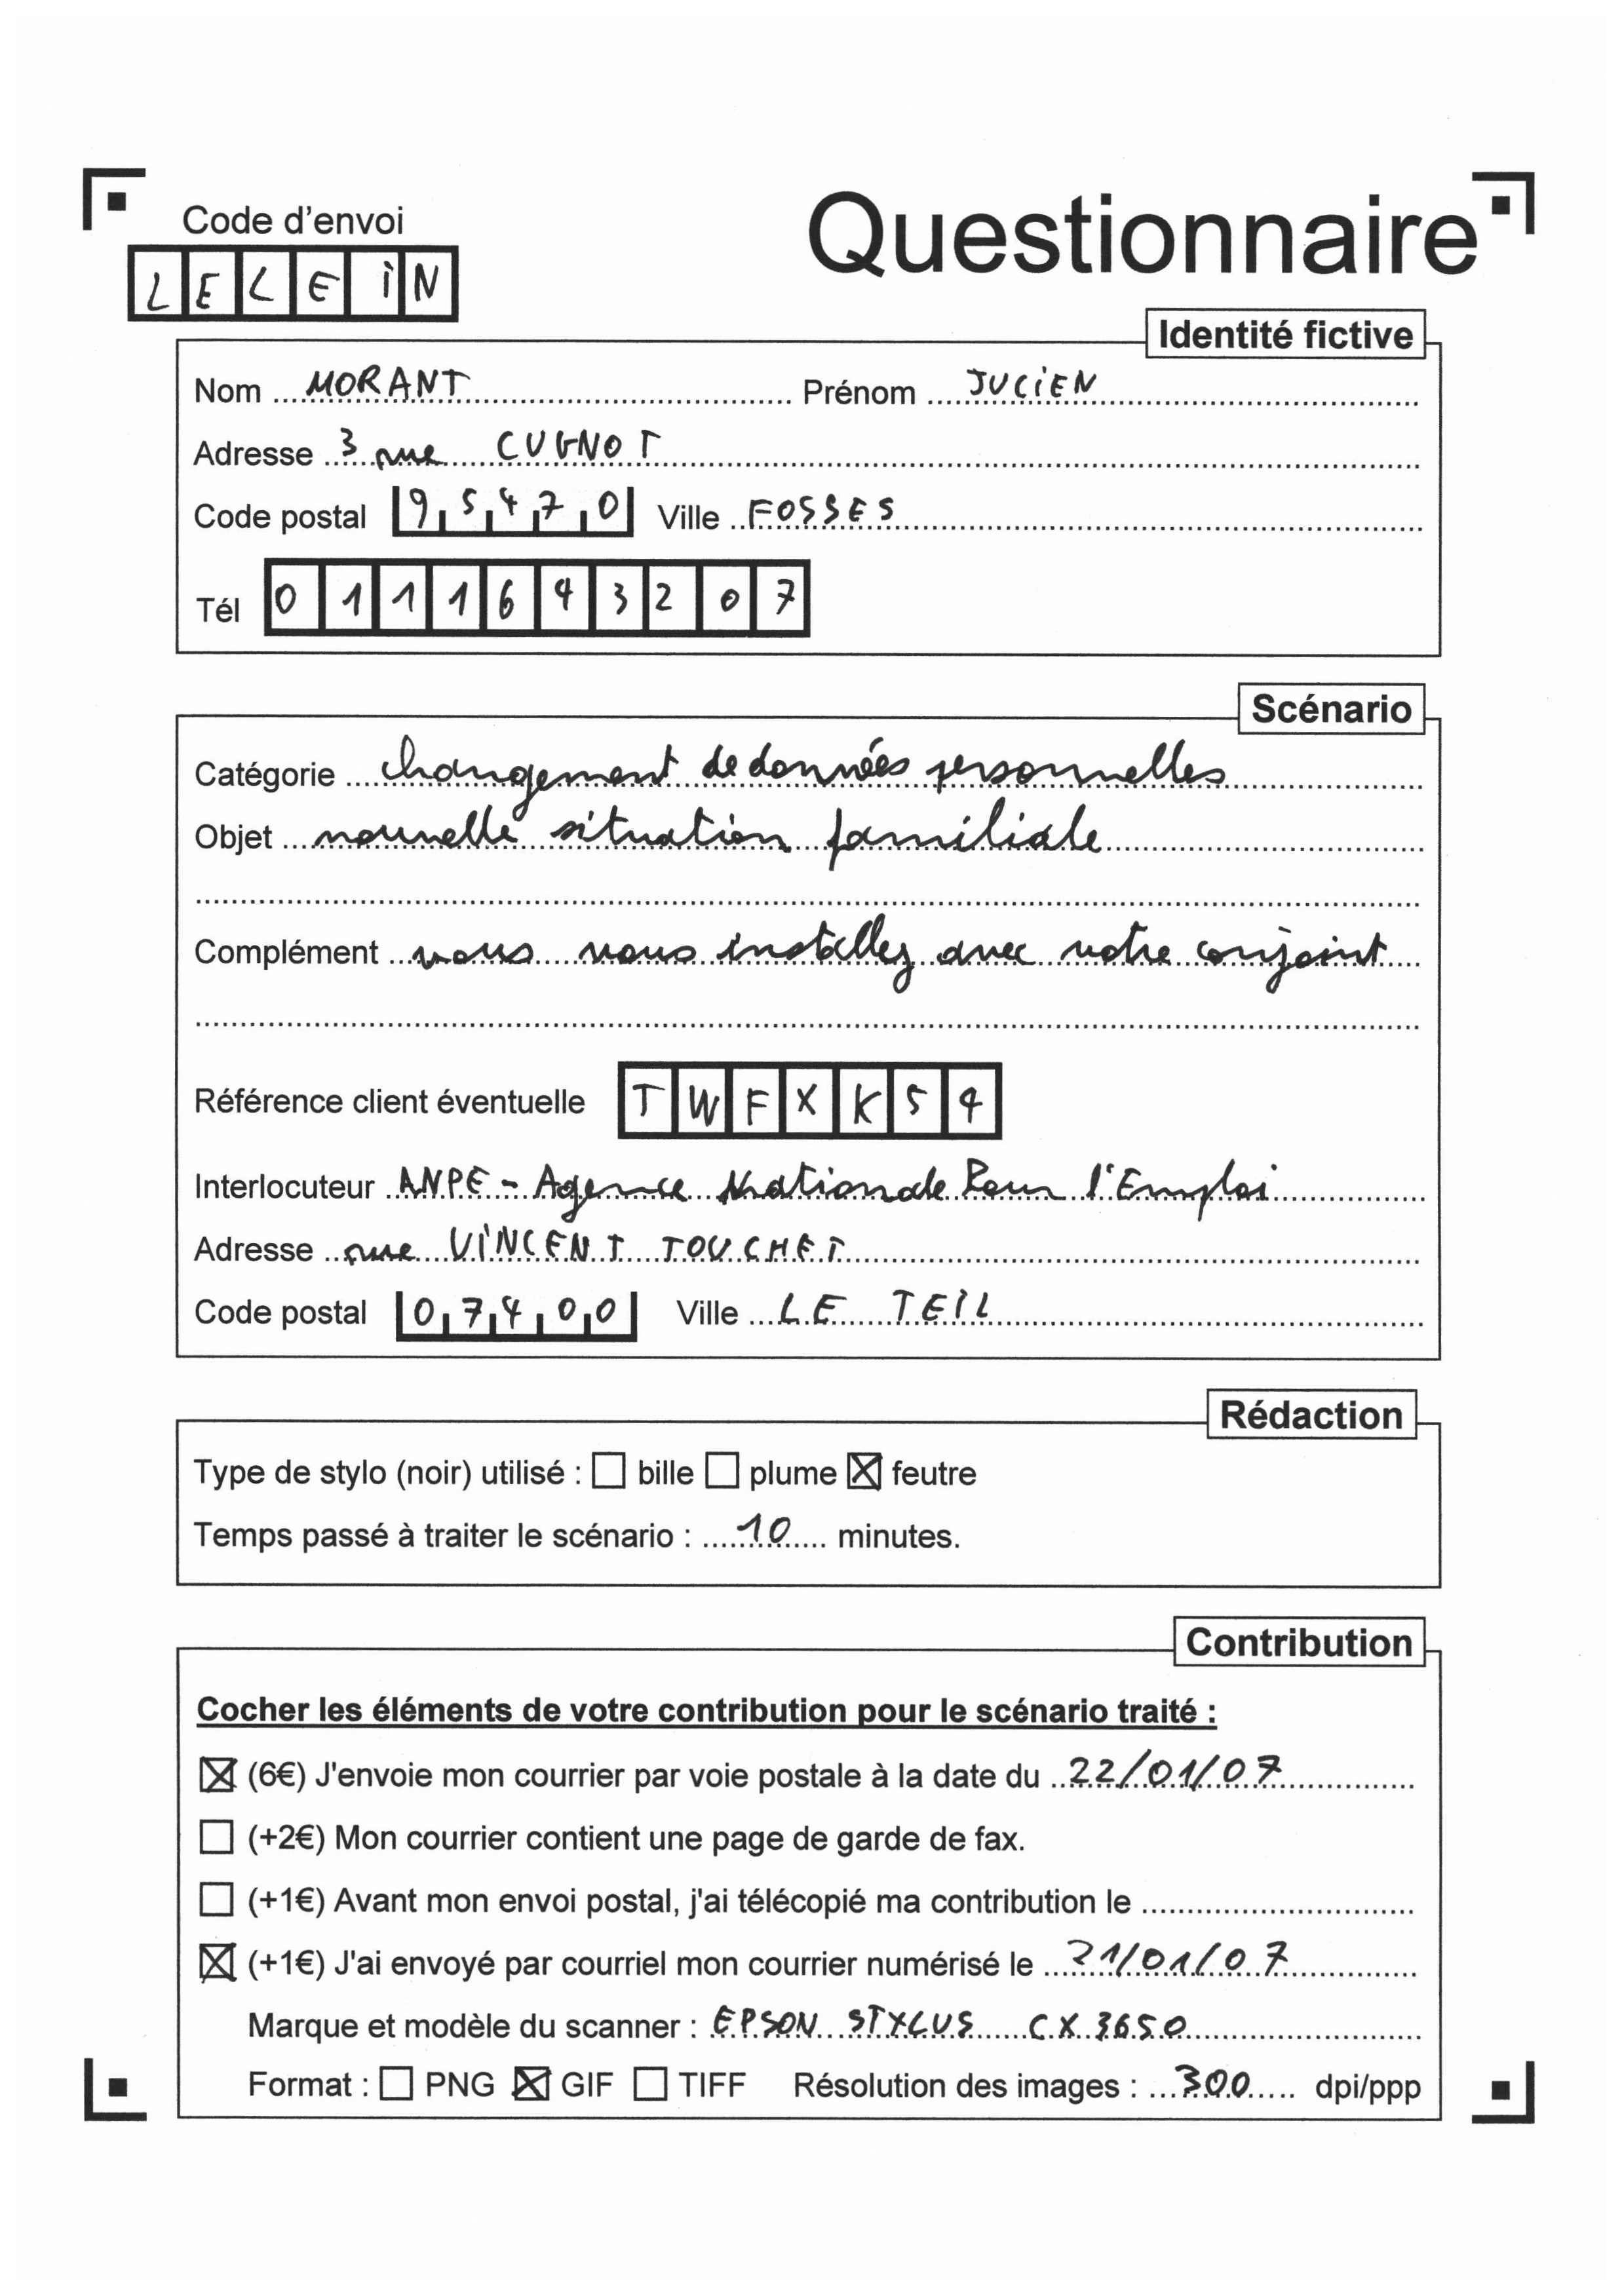 Code d'envoi
Questionnaire
LELEIN
Identité fictive
Nom MORANT Prénom JUCIEN
Adresse 3 rue CUGNOT
Code postal 95470 Ville FOSSES
Tél 0111643207
Scénario
Catégorie changement de données personnelles
Objet nouvelle situation familiale
Complément vous vous installez avec votre conjoint
Référence client éventuelle TWFXK54
Interlocuteur ANPE - Agence Nationale Pour l'Emploi
Adresse rue VINCENT TOUCHET
Code postal 07400 Ville LE TEIL
Rédaction
Type de stylo (noir) utilisé : ☐ bille ☐ plume ☒ feutre
Temps passé à traiter le scénario : 10 minutes.
Contribution
Cocher les éléments de votre contribution pour le scénario traité :
☒ (6€) J'envoie mon courrier par voie postale à la date du 22/01/07
☐ (+2€) Mon courrier contient une page de garde de fax.
☐ (+1€) Avant mon envoi postal, j'ai télécopié ma contribution le
☒ (+1€) J'ai envoyé par courriel mon courrier numérisé le 21/01/07
Marque et modèle du scanner : EPSON STYLUS CX 3650
Format : ☐ PNG ☒ GIF ☐ TIFF Résolution des images : 300 dpi/ppp